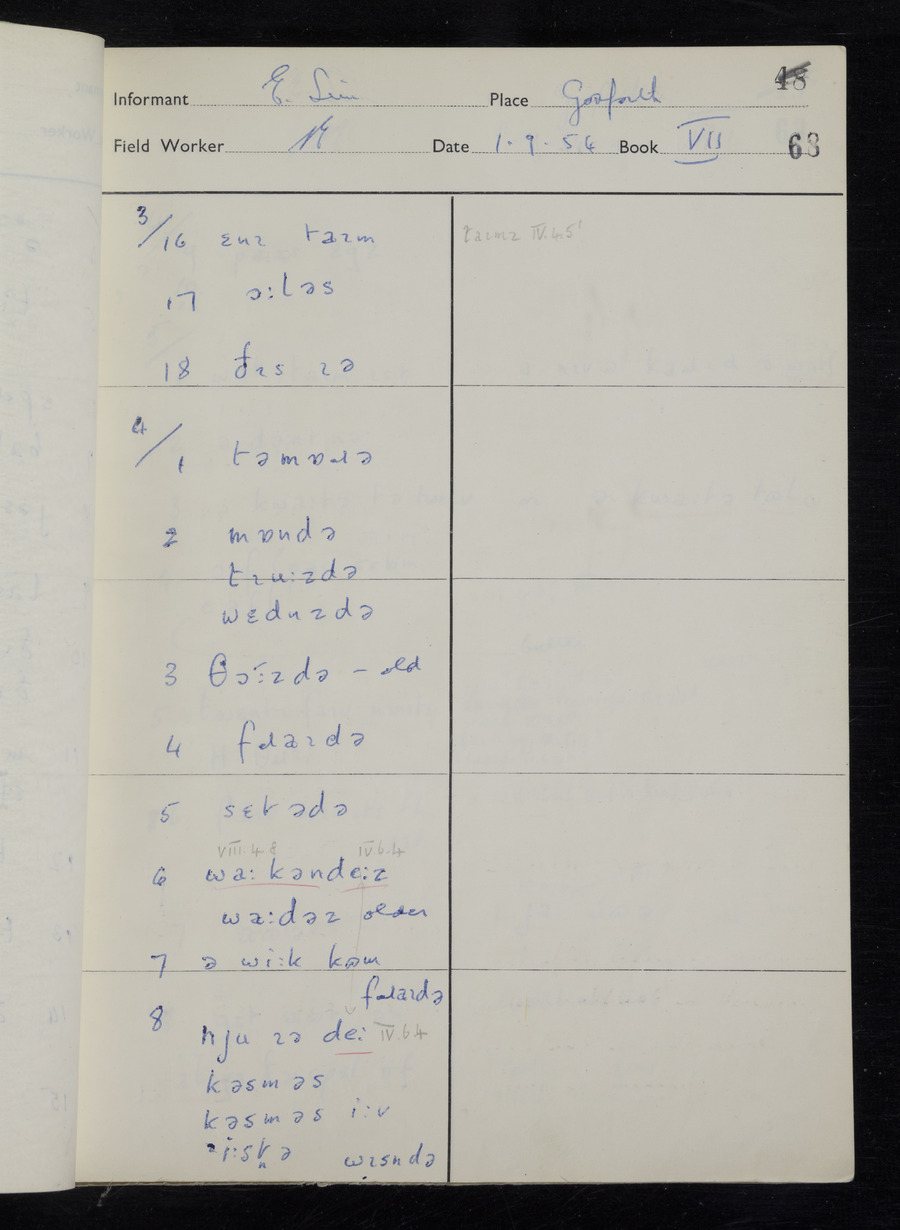 Informant E. Place Gosforth 48
Field Worker Date 1.9.54 Book VII 63
3/16 ɛnɪ taɪm taɪmz IV.4.5'
17 ɔ:ləs
18 jɪs ɪə
4/1 təmɒɹə
2 mɒndə
tɪu:zdə
wɛdnzdə
3 θɔ:zdə – old
4 fɹaɪdə
5 sɛtədə
VIII.4.8 IV.6.4
6 wa: kəndɛ:z
wa:dəz older
7 ə wi:k kəm
fɹaɪdə
8 nju ɪə dɛ: IV.6.4
kəsməs
kəsməs i:v
i:stə wɪsndə